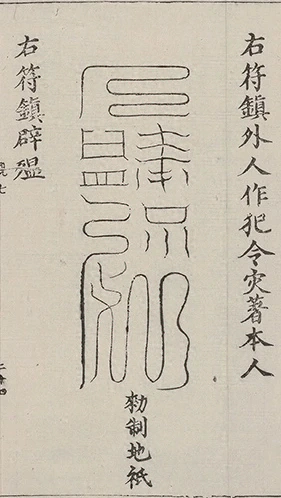 右符鎮外人作犯令灾著本人
勑制地祇
右符鎮辟瘟